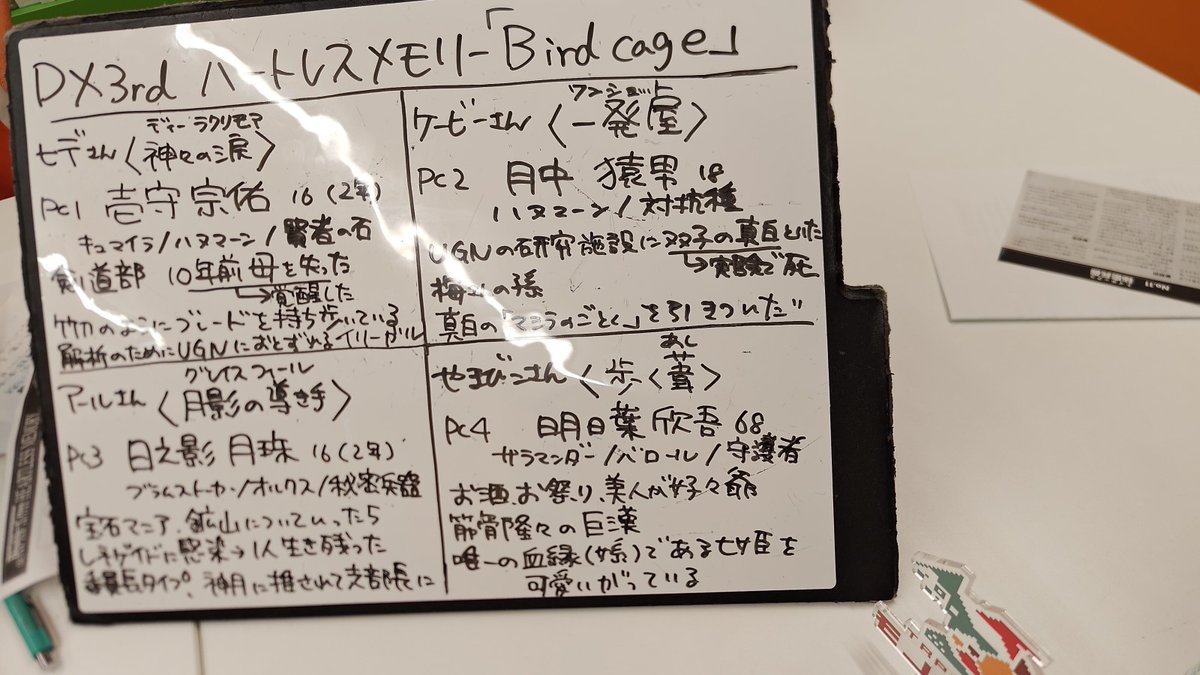 DX3rd ハートレスメモリー「Bird cage」
ディー ラクリモア
七デさん〈神々の涙〉
PC1 壱守 宗佑 16(2年)
キュマイラ/ハヌマーン/賢者の石
剣道部 10年前母を失った
→覚醒した
竹刀のようにブレードを持ち歩いている
解析のためにUGNにおとずれるイリーガル
ワンショット
ケービーさん〈一発屋〉
PC2 月中 猿男 18
ハヌマーン/対抗種
UGNの研究施設に双子の真白といた
→実験で死
の孫
真白の「マシラのごとく」を引きついだ
グレイスフィール
アールさん〈月影の導き手〉
PC3 日之影 月珠 16(2年)
ブラムストーカー/オルクス/秘密兵器
宝石マニア、鉱山についていったら
レネゲイドに感染→1人生き残った
委員長タイプ。神月に推されて支部長に
あし
やまびこさん〈歩く葦〉
PC4 明日葉 欣吾 68
サラマンダー/バロール/守護者
お酒、お祭り、美人が好々爺
筋骨隆々の巨漢
唯一の血縁(姪)である七姫を
可愛いがっている
No.11